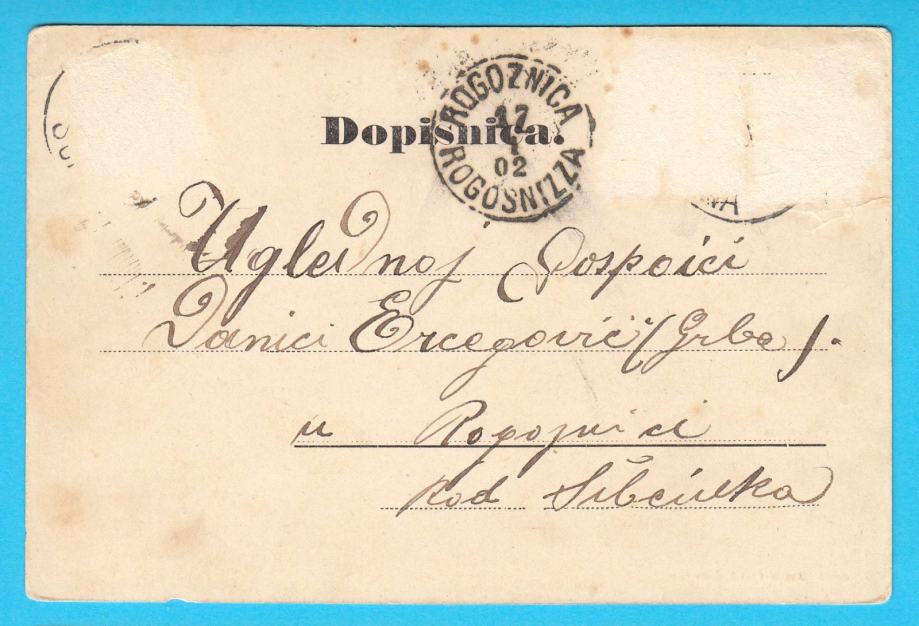 Dopisnica.
ROGOZNICA
17
1
02
ROGOSNIZZA
Uglednoj Gospoici
Danici Ercegović (Grba).
u Rogoznici
kod Šibenika